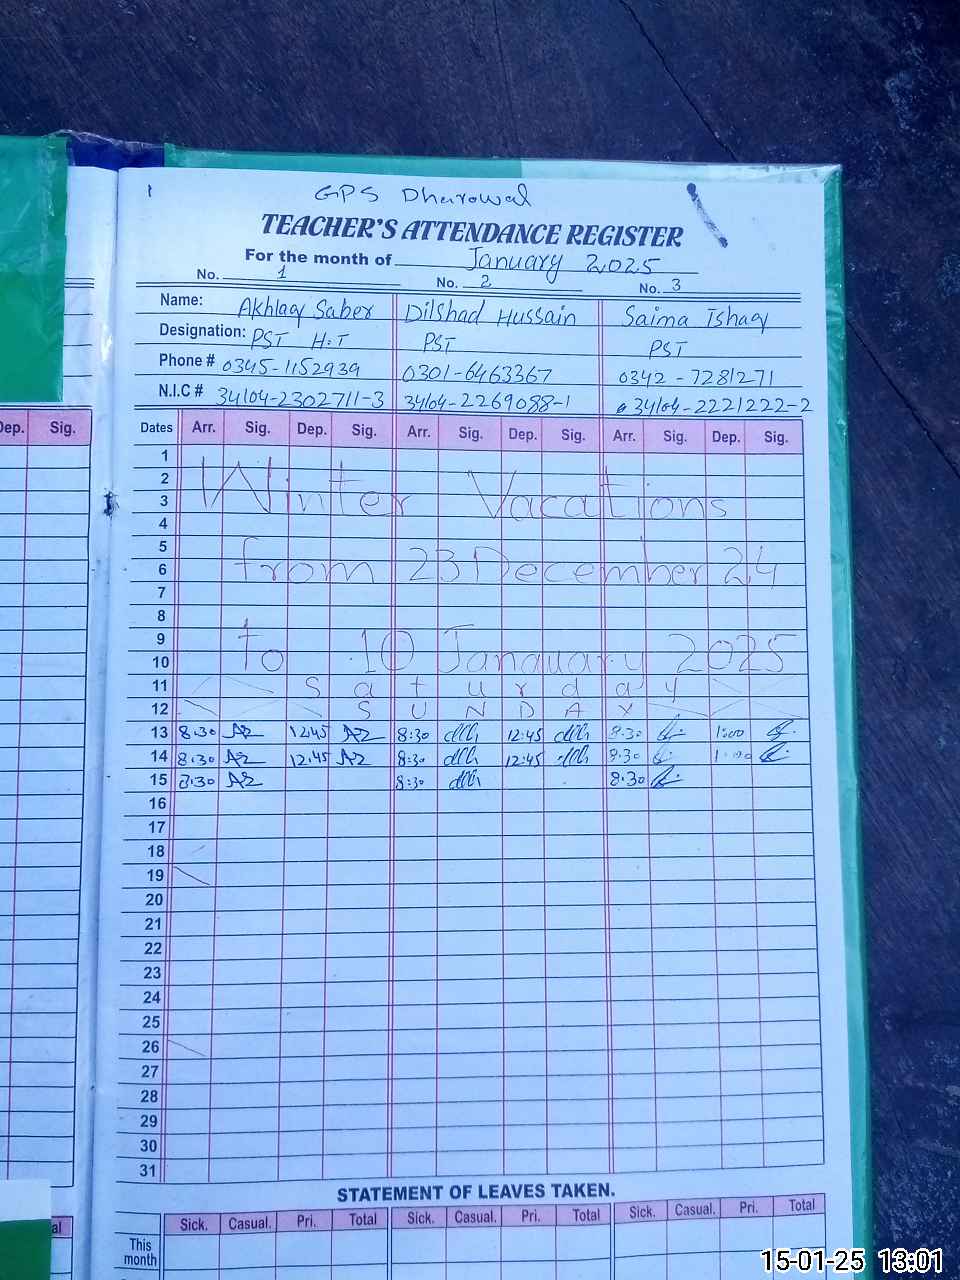 GPS Dharowal
TEACHER'S ATTENDANCE REGISTER
For the month of January 2025
No. 1 No. 2 No. 3
Name: Akhlaq Saber Dilshad Hussain Saima Ishaq
Designation: PST H.T PST PST
Phone # 0345-1152939 0301-6463367 0342-7281271
N.I.C # 34104-2302711-3 34104-2269088-1 34104-2221222-2
Dep. Sig.
Dates Arr. Sig. Dep. Sig. Arr. Sig. Dep. Sig. Arr. Sig. Dep. Sig.
1
2
3 Winter Vacations
4
5
6 from 23 December 24
7
8
9
10 to 10 Janauary 2025
11 Saturday
12 SUNDAY
13 8:30 12:45 8:30 12:45 8:30 1:00
14 8:30 12:45 8:30 12:45 8:30 1:00
15 8:30 8:30 8:30
16
17
18
19
20
21
22
23
24
25
26
27
28
29
30
31
STATEMENT OF LEAVES TAKEN.
Sick. Casual. Pri. Total Sick. Casual. Pri. Total Sick. Casual. Pri. Total
This
month
15-01-25 13:01